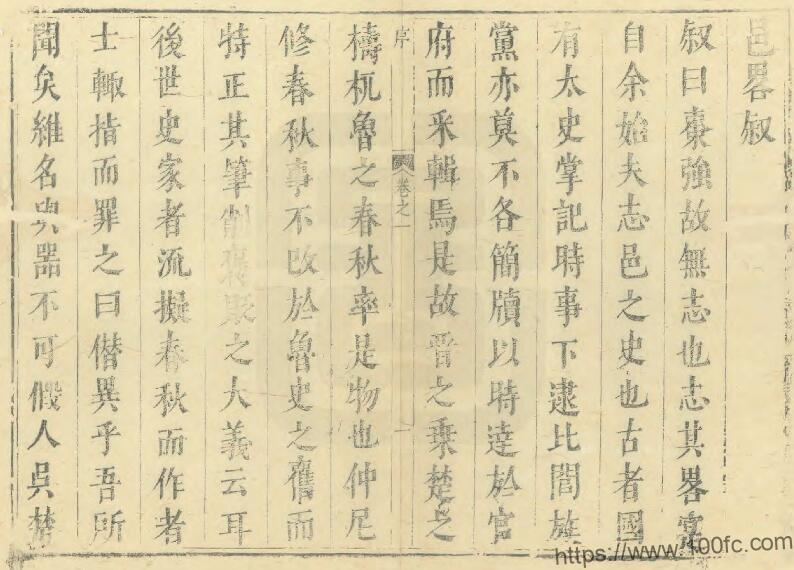 邑畧叙
叙曰棗強故無志也志其畧寔
自余始夫志邑之史也古者國
有太史掌記時事下逮比閭族
黨亦莫不各簡牘以時達於官
序
卷之一
一
府而采輯焉是故晋之乗楚之
檮杌魯之春秋率是物也仲尼
修春秋事不改於魯史之舊而
特正其筆削褒貶之大義云耳
後世史家者流擬春秋而作者
士輙指而罪之曰僣異乎吾所
聞矣維名與器不可假人吳楚
https://www.100fc.com